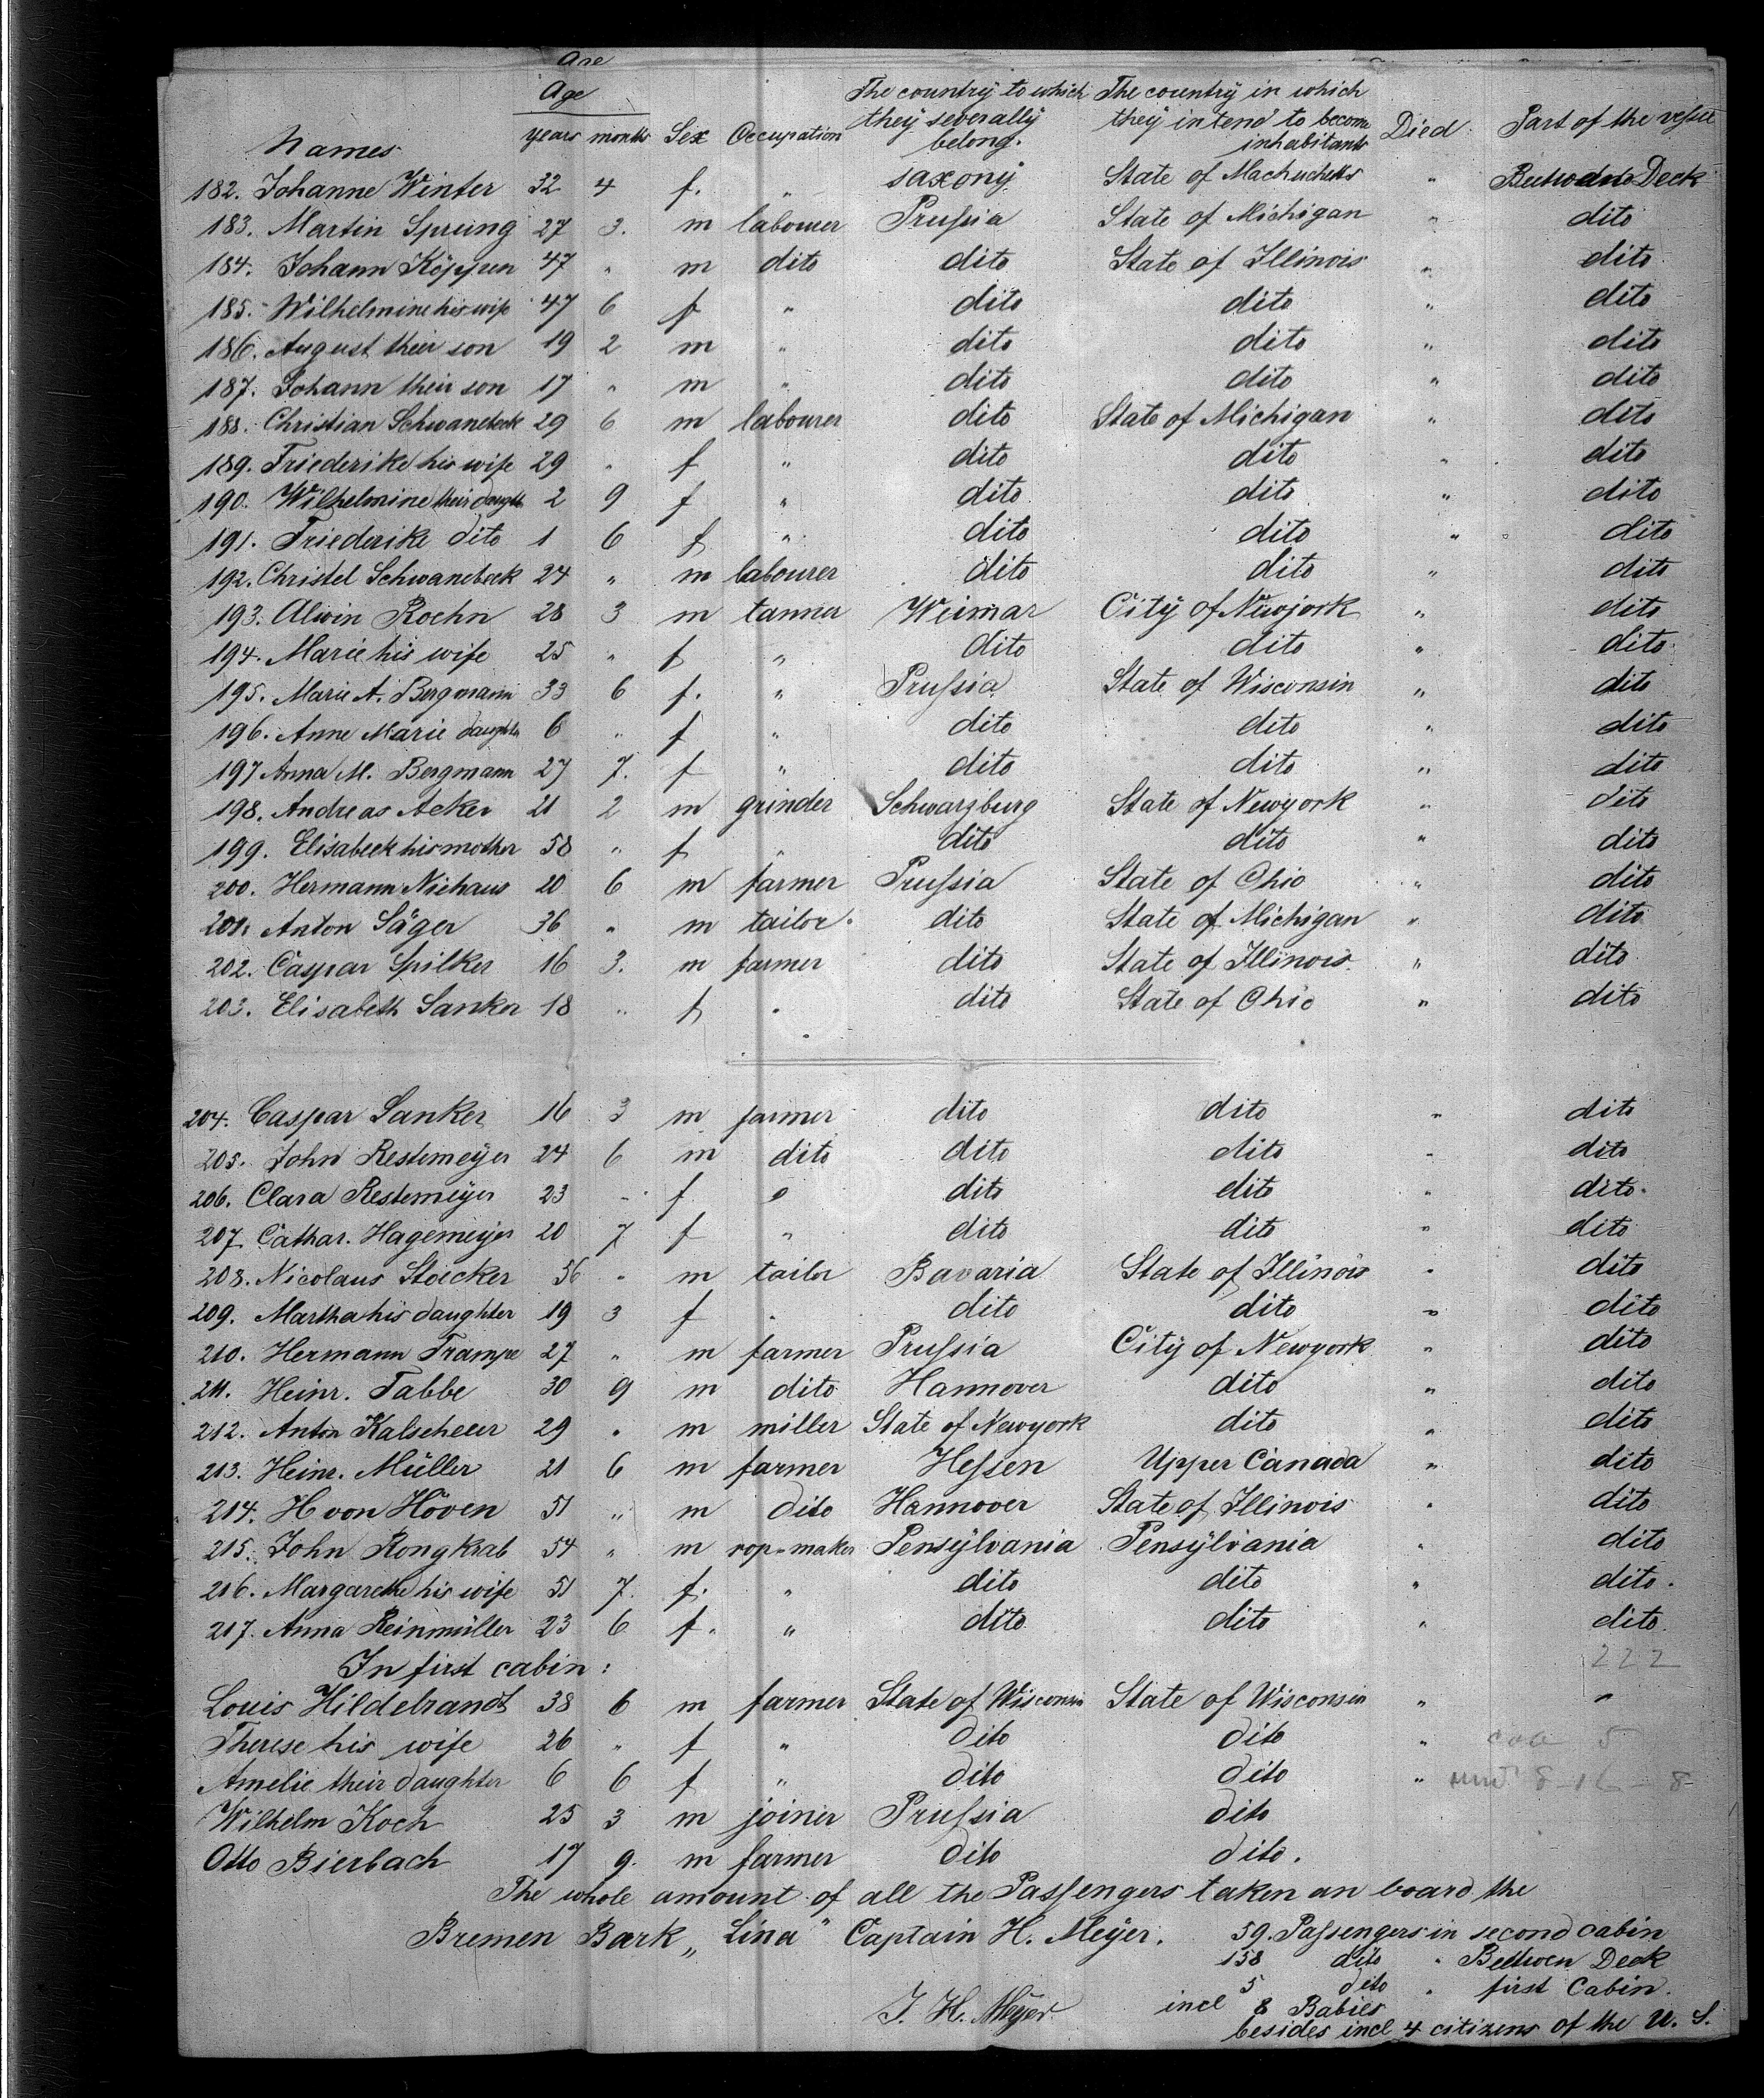 Age
Age
The country to which The country in which
they severally they intend to become
Names years months Sex Occupation belong. inhabitants Died Part of the vessel
182. Johanne Winter 32 4 f. " saxony State of Machuchetts " Between Deck
183. Martin Spreing 27 3. m labourer Prussia State of Michigan " dito
184. Johann Köppen 47 " m dito dito State of Illinois " dito
185. Wilhelmine his wife 47 6 f " dito dito " dito
186. August their son 19 2 m " dito dito " dito
187. Johann their son 17 " m " dito dito " dito
188. Christian Schwanebeck 29 6 m labourer dito State of Michigan " dito
189. Friederike his wife 29 " f " dito dito " dito
190. Wilhelmine their daught. 2 9 f " dito dito " dito
191. Friederike dito 1 6 f " dito dito " dito
192. Christel Schwanebeck 24 " m labourer dito dito " dito
193. Alwin Rochn 28 3 m tanner Weimar City of Newjork " dito
194. Marie his wife 25 " f " dito dito " dito
195. Marie A. Bergmann 33 6 f. " Prussia State of Wisconsin " dito
196. Anne Marie daughter 6 " f " dito dito " dito
197 Anna M. Bergmann 27 7. f " dito dito " dito
198. Andreas Acker 21 2 m grinder Schwarzburg State of Newyork " dito
199. Elisabeek his mother 58 " f " dito dito " dito
200. Hermann Niehaus 20 6 m farmer Prussia State of Ohio " dito
201. Anton Säger 36 " m tailor. dito State of Michigan " dito
202. Caspar Spilker 16 3. m farmer dito State of Illinois. " dito
203. Elisabeth Sanker 18 " f " dito State of Ohio " dito
204. Caspar Sanker 16 3 m farmer dito dito " dito
205. John Restemeÿer 24 6 m dito dito dito " dito
206. Clara Restemeÿer 23 " f " dito dito " dito.
207. Cathar. Hagemeijer 20 7 f " dito dito " dito
208. Nicolaus Stoecker 56 " m tailor Bavaria State of Illinois " dito
209. Martha his daughter 19 3 f " dito dito " dito
210. Hermann Trampe 27 " m farmer Prussia City of Newyork " dito
211. Heinr. Tabbe 30 9 m dito Hannover dito " dito
212. Anton Kalscheuer 29 " m miller State of Newyork dito " dito
213. Heinr. Müller 21 6 m farmer Hessen Upper Canada " dito
214. H von Höven 51 " m dito Hannover State of Illinois " dito
215. John Rongkrab 54 " m rop-maker Pensÿlvania Pensÿlvania " dito
216. Margarethe his wife 51 7. f. " dito dito " dito.
217. Anna Reinmüller 23 6 f. " dito dito " dito.
In first cabin: 222
Louis Hildebrandt 38 6 m farmer State of Wisconsin State of Wisconsin " "
Therese his wife 26 " f " dito dito " 5
Amelie their daughter 6 6 f " dito dito " 8-16-8
Wilhelm Koch 25 3 m joiner Prussia dito
Otto Bierbach 17 9. m farmer dito dito.
The whole amount of all the Passengers taken an board the
Bremen Bark „Lina" Captain H. Meÿer. 59. Passengers in second cabin
158 dito " Between Deck
5 dito " first Cabin.
J. H. Meyer. incl 8 Babies
besides incl 4 citizens of the U. S.